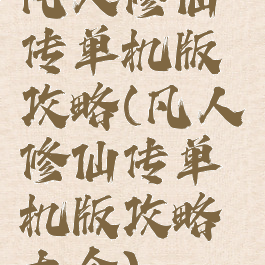 凡人修仙
传单机版
攻略(凡人
修仙传单
机版攻略
大全)